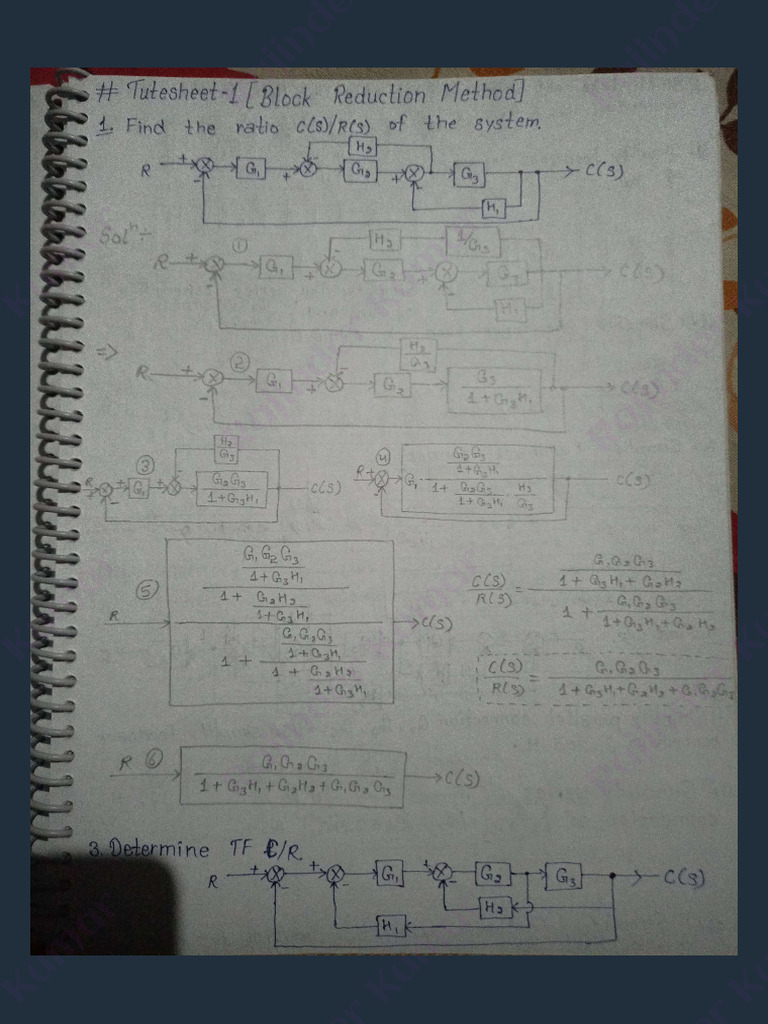 # Tutesheet-1 [Block Reduction Method]
1. Find the ratio C(S)/R(S) of the system.
R + - G₁ + - H₂ G₂ + - G₃ H₁ C(S)
Solⁿ ÷
① R + - G₁ + - H₂ 1/G₃ G₂ + - G₃ H₁ C(S)
=> ② R + - G₁ + - H₂/G₃ G₂ G₃/1+G₃H₁ C(S)
③ R + - G₁ + - H₂/G₃ G₂G₃/1+G₃H₁ C(S)
④ R + - G₁ G₂G₃/1+G₃H₁ / 1 + G₂G₃/1+G₃H₁ . H₂/G₃ C(S)
⑤ R G₁G₂G₃/1+G₃H₁ / 1 + G₂H₂/1+G₃H₁ / 1 + G₁G₂G₃/1+G₃H₁ / 1 + G₂H₂/1+G₃H₁ C(S)
C(S)/R(S) = G₁G₂G₃/1+G₃H₁+G₂H₂ / 1 + G₁G₂G₃/1+G₃H₁+G₂H₂
C(S)/R(S) = G₁G₂G₃/1+G₃H₁+G₂H₂+G₁G₂G₃
R ⑥ G₁G₂G₃/1+G₃H₁+G₂H₂+G₁G₂G₃ C(S)
3. Determine TF C/R.
R + - + - G₁ + - G₂ G₃ C(S)
H₂
H₁